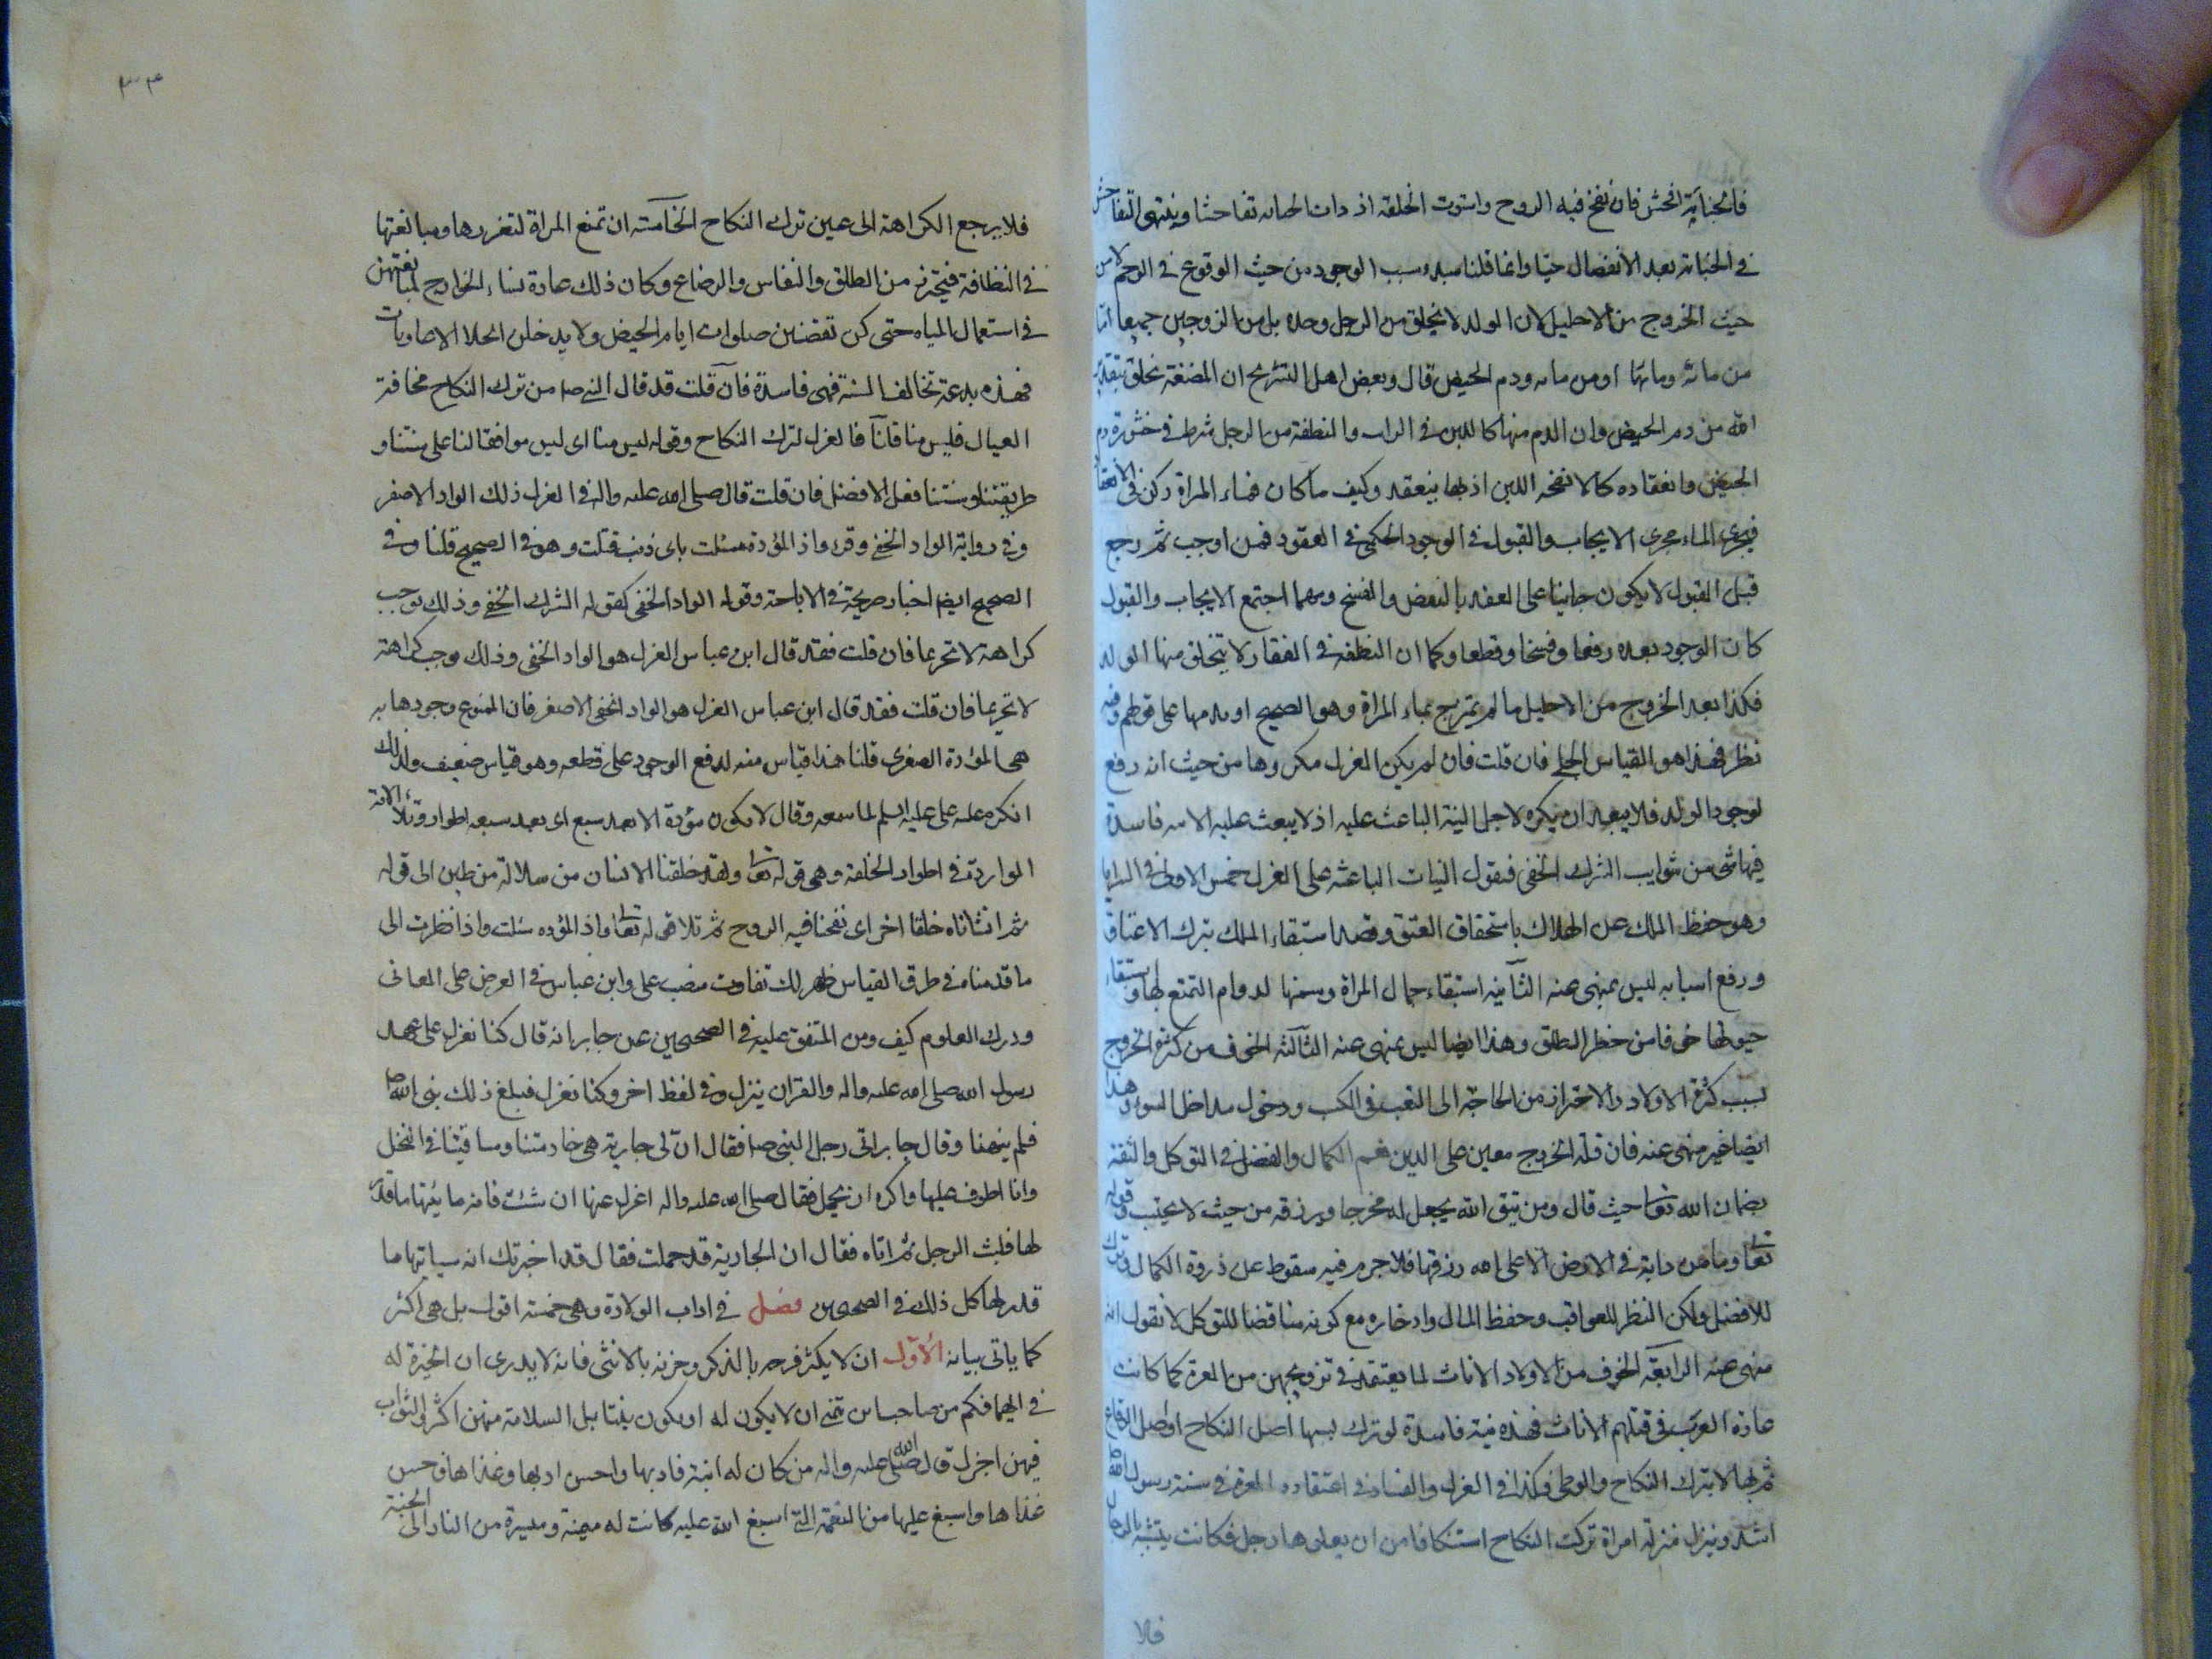 فالجناية افحش فان نفخ فيه الروح واستوت الخلقة ازدادت الجناية تفاحشا ومنتهى التفاحش
في الجناية بعد الانفصال حيّا وانما قلنا مبدء سبب الوجود من حيث الوقوع في الرحم لا من
حيث الخروج من الاحليل لان الولد لا يخلق من الرجل وحده بل من الزوجين جميعا امّا
من مائه ومائها او من مائه ودم الحيض قال وبعض اهل التشريح ان المضغة تخلق بتقدير
الله من دم الحيض وان الدم منها كاللبن في الرايب والنطفة من الرجل شرط في خثورة دم
الحيض وانعقاده كالانفحة اللبن اذ بها ينعقد وكيف ما كان فماء المراة ركن في الانعقاد
فيجرى الماء مجرى الايجاب والقبول في الوجود الحكمى في العقود فمن اوجب ثم رجع
قبل القبول لا يكون جانيا على العقد بالنقض والفسخ ومهما اجتمع الايجاب والقبول
كان الوجود بعده رفعا وفسخا وقطعا وكما ان النطفة في الفقار لا يتخلق منها الولد
فكذا بعد الخروج من الاحليل ما لم يمتزج بماء المراة وهو الصحيح او بدمها على قولهم وفيه
نظر فهذا هو القياس الجلى فان قلت فان لم يكن العزل مكروها من حيث انه دفع
لوجود الولد فلا يبعد ان يكره لاجل النية الباعث عليه اذ لا يبعث عليه الا نية فاسدة
فيها شئ من شوايب الشرك الخفى فنقول النيات الباعثة على العزل خمس الاولى في السرايا
وهو حفظ الملك عن الهلاك باستحقاق العتق وقصد استبقاء الملك بترك الاعتاق
ودفع اسبابه ليس بمنهى عنه الثانية استبقاء جمال المراة وسمنها لدوام التمتع بها واستبقاء
حيوتها خوفا من خطر الطلق وهذا ايضا ليس بمنهى عنه الثالثة الخوف من كثرة الخروج
لسبب كثرة الاولاد والاحتراز من الحاجة الى التعب في الكسب ودخول مداخل السوء وهذا
ايضا غير منهى عنه فان قلة الخروج معين على الدين نعم الكمال والفضل في التوكل والثقة
بضمان الله تعالى حيث قال ومن يتق الله يجعل له مخرجا ويرزقه من حيث لا يحتسب وقوله
تعالى وما من دابة في الارض الا على الله رزقها فلا جرم فيه سقوط عن ذروة الكمال وترك
للافضل ولكن النظر للعواقب وحفظ المال وادخاره مع كونه مناقضا للتوكل لا نقول انه
منهى عنه الرابعة الخوف من الاولاد الاناث لما يعتقد في تزويجهن من المعرة كما كانت
عادة العرب في قتلهم الاناث فهذه نية فاسدة لو ترك بسببها اصل النكاح او اصل الوقاع
ثم بها لا بترك النكاح والوطى فكذا في العزل والفساد في اعتقاده المعرة في سنة رسول الله
اشد وينزل منزلة امراة تركت النكاح استنكافا من ان يعلوها رجل فكانت يتشبه بالرجال
فلا
٣٤
فلا يرجع الكراهة الى عين ترك النكاح الخامسة ان تمنع المراة لتعززها ومبالغتها
في النظافة فيتحرز من الطلق والنفاس والرضاع وكان ذلك عادة نساء الخوارج لمبالغتهن
في استعمال المياه حتى كن تقضين صلوات ايام الحيض ولا يدخلن الخلا الا عاريات
فهذه بدعة تخالف السنة فهى فاسدة فان قلت قد قال النبى ص من ترك النكاح مخافة
العيال فليس منا قلنا فالعزل لترك النكاح وقوله ليس منا اى ليس موافقا لنا على سنتنا و
طريقتنا وسنتنا فعل الافضل فان قلت قال صلى الله عليه واله في العزل ذلك الواد الاصغر
وفي رواية الواد الخفى وقرء واذا المؤدة سئلت باى ذنب قتلت وهو في الصحيح قلنا وفي
الصحيح ايضا اخبار صريحة في الاباحة وقوله الواد الخفى كقوله الشرك الخفى وذلك يوجب
كراهة لا تحريما فان قلت فقد قال ابن عباس العزل هو الواد الخفى وذلك يوجب كراهة
لا تحريما فان قلت فقد قال ابن عباس العزل هو الواد الخفى الاصغر فان الممنوع وجودها به
هى المؤدة الصغرى قلنا هذا قياس منه لدفع الوجود على قطعه وهو قياس ضعيف ولذلك
انكره عليه على عليه السلم لما سمعه وقال لا يكون مؤدة الا بعد سبع اى بعد سبعه اطوار وتلا الاية
الواردة في اطوار الخلقة وهى قوله تعالى ولقد خلقنا الانسان من سلالة من طين الى قوله
ثم انشاناه خلقا اخر اى نفخنا فيه الروح ثم تلا قوله تعالى واذا المؤده سئلت واذا نظرت الى
ما قدمناه في طرق القياس ظهر لك تفاوت منصب على وابن عباس في الغوص على المعانى
ودرك العلوم كيف ومن المتفق عليه في الصحيحين عن جابر انه قال كنا نعزل على عهد
رسول الله صلى الله عليه واله والقران ينزل وفي لفظ اخر وكنا نعزل فبلغ ذلك نبى الله ص
فلم ينهنا وقال جابر اتى رجل النبى ص فقال ان لى جارية هى خادمتنا وساقيتنا في النخل
وانا اطوف عليها واكره ان يحمل فقال صلى الله عليه واله اعزل عنها ان شئت فانه ما ياتيها ما قدر
لها فلبث الرجل ثم اتاه فقال ان الجارية قد حملت فقال قد اخبرتك انه سياتيها ما
قدر لها كل ذلك في الصحيحين فصل في اداب الولادة وهى خمسة اقول بل هى اكثر
كما ياتى بيانه الاول ان لا يكثر فرحه بالذكر وحزنه بالانثى فانه لا يدرى ان الخيرة له
في ايهما فكم من صاحب ابن تمنى ان لا يكون له او يكون بنتا بل السلامة منهن اكثر والثواب
فيهن اجزل قال صلى الله عليه واله من كان له ابنة فادبها واحسن ادبها وغذاها فاحسن
غذاها واسبغ عليها من النعمة التى اسبغ الله عليه كانت له ميمنة وميسرة من النار الى الجنة